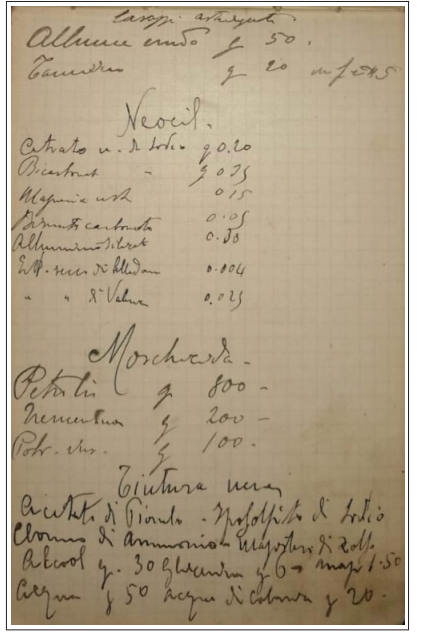 Allume crudo g 50.
Tannino g 20
Neocil.
Citrato n. di Sodio g 0.20
Bicarbonat " g 0.25
Magnesia ust 0.15
Bismuti carbonato 0.05
Alluminio silicat 0.50
Est. secco di Belladon 0.004
" " di Valer 0.025
Moschicida -
Petrolio g 800 -
Trementina g 200 -
Polv. g 100 -
Tintura nera
Acetato di Piombo - Iposolfito di Sodio
Cloruro di Ammonio - Magistero di Zolfo
Alcool g. 30 Glicerina g 6 - 1.50
Acqua g 50 acqua di Colonia g 20 -